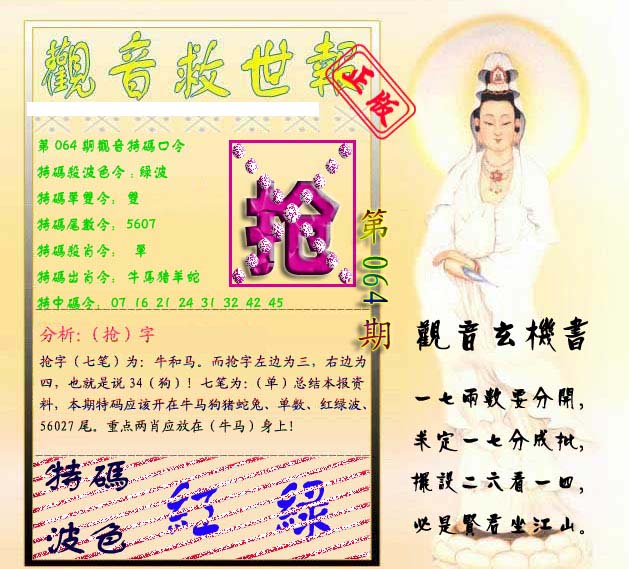 觀音救世報
正版
第064期觀音特碼口令
特碼殺波色令：綠波
特碼單雙令： 雙
特碼尾數令： 5607
特碼殺肖令： 單
特碼出肖令： 牛馬猪羊蛇
特中碼令： 07 16 21 24 31 32 42 45
抢
第064期
分析:（抢）字
抢字（七笔）为：牛和马。而抢字左边为三，右边为
四，也就是说34（狗）！七笔为：（单）总结本报资
料，本期特码应该开在牛马狗猪蛇兔、单数、红绿波、
56027尾。重点两肖应放在（牛马）身上！
特碼
波色
紅 綠
觀音玄機書
一七兩數要分開，
求定一七分成批，
擺設二六看一四，
必是賢君坐江山。